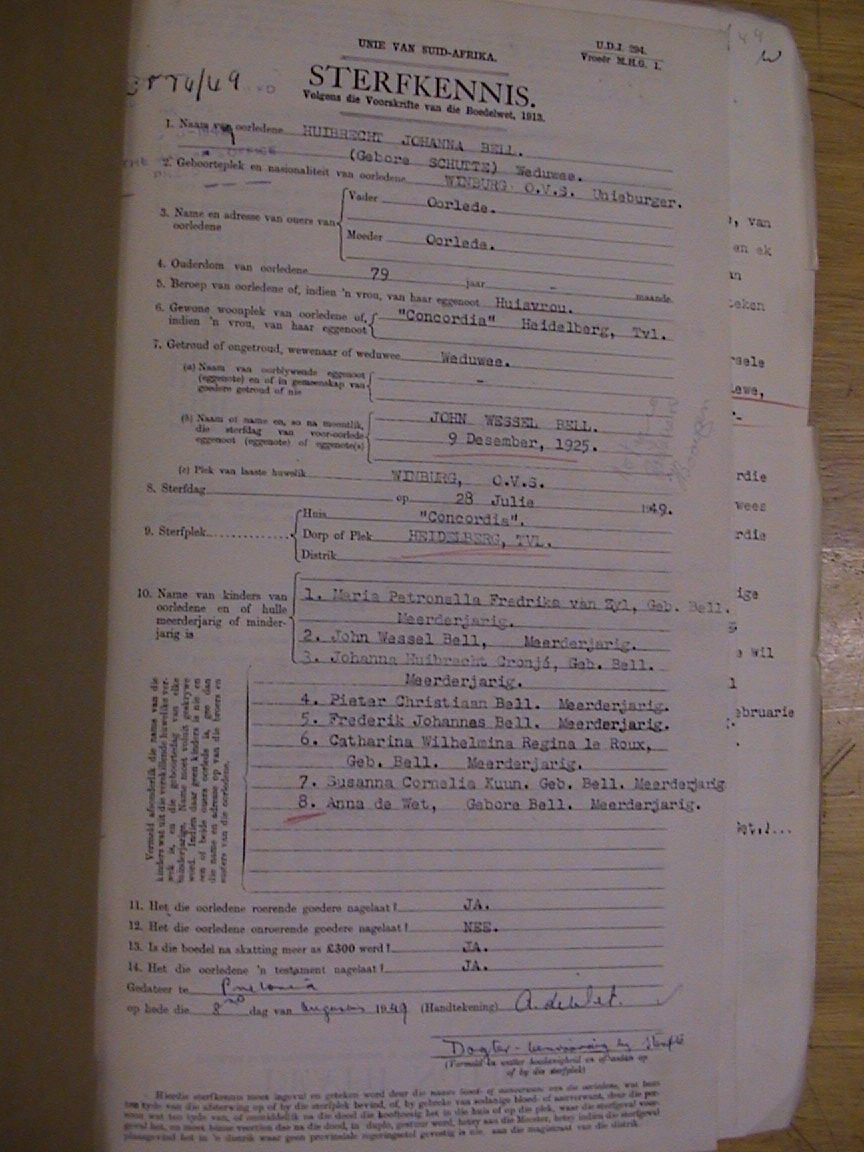 UNIE VAN SUID-AFRIKA.
U.D.J. 294.
Vroeër M.H.G. 1.
STERFKENNIS.
Volgens die Voorskrifte van die Boedelwet, 1913.
1. Naam van oorledene HUIBRECHT JOHANNA BELL.
(Gebore SCHUTTE) Weduwee.
2. Geboorteplek en nasionaliteit van oorledene WINBURG O.V.S. Unieburger.
3. Name en adresse van ouers van oorledene
Vader Oorlede.
Moeder Oorlede.
4. Ouderdom van oorledene 79 jaar - maande.
5. Beroep van oorledene of, indien 'n vrou, van haar eggenoot Huisvrou.
6. Gewone woonplek van oorledene of, indien 'n vrou, van haar eggenoot "Concordia" Heidelberg, Tvl.
7. Getroud of ongetroud, wewenaar of weduwee Weduwee.
(a) Naam van oorblywende eggenoot (eggenote) en of in gemeenskap van goedere getroud of nie -
(b) Naam of name en, so na moontlik, die sterfdag van voor-oorlede eggenoot (eggenote) of eggenote(s) JOHN WESSEL BELL.
9 Desember, 1925.
(c) Plek van laaste huwelik WINBURG, O.V.S.
8. Sterfdag op 28 Julie 1949.
9. Sterfplek
Huis "Concordia".
Dorp of Plek HEIDELBERG, TVL.
Distrik
10. Name van kinders van oorledene en of hulle meerderjarig of minderjarig is
1. Maria Petronella Fredrika van Zyl, Geb. Bell.
Meerderjarig.
2. John Wessel Bell, Meerderjarig.
3. Johanna Huibrecht Cronjé, Geb. Bell.
Meerderjarig.
4. Pieter Christiaan Bell. Meerderjarig.
5. Frederik Johannes Bell. Meerderjarig.
6. Catharina Wilhelmina Regina le Roux,
Geb. Bell. Meerderjarig.
7. Susanna Cornelia Kuun. Geb. Bell. Meerderjarig
8. Anna de Wet, Gebore Bell. Meerderjarig.
Vermeld afsonderlik die name van die
kinders wat uit die verskillende huwelike ver-
wek is, en die geboortedag van elke
minderjarige. Name moet voluit geskrywe
word. Indien daar geen kinders is nie en
een of beide ouers oorlede is, gee dan
die name en adresse op van die broers en
susters van die oorledene.
11. Het die oorledene roerende goedere nagelaat? JA.
12. Het die oorledene onroerende goedere nagelaat? NEE.
13. Is die boedel na skatting meer as £300 werd? JA.
14. Het die oorledene 'n testament nagelaat? JA.
Gedateer te Pretoria
op hede die 8 dag van Augustus 1949 (Handtekening) A. de Wet.
Dogter
(Vermeld in watter hoedanigheid en of aanwesig op
of by die sterfplek)
, van
en ek
teken
ewe,
rdie
wees
rdie
ige
wil
ebruarie